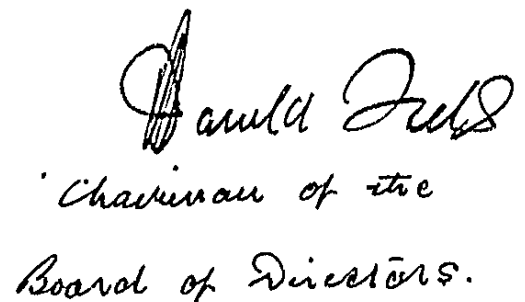 Harold
Chairman of the
Board of Directors.